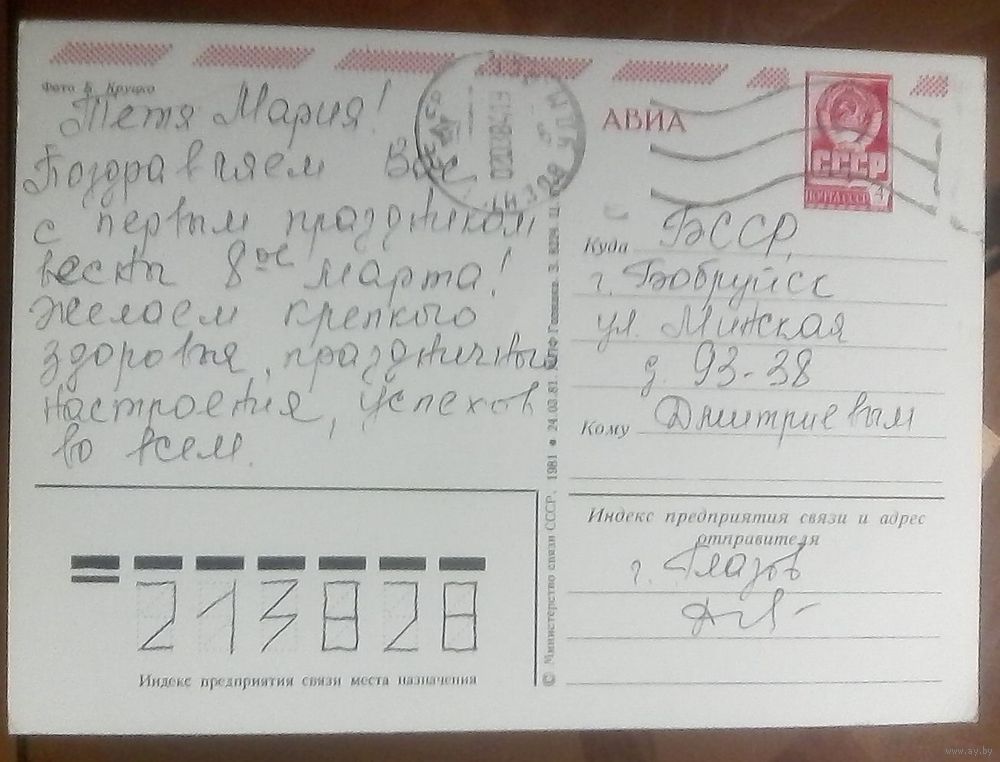 Фото В. Кручко
Тетя Мария!
Поздравляем Вас
с первым праздником
весны 8ое марта!
Желаем крепкого
здоровья, праздничных
настроения, успехов
во всем.
АВИА
СССР
ПОЧТА СССР
4
Куда БССР,
г. Бобруйск
ул. Минская
д. 93-38
Кому Дмитриевым
Индекс предприятия связи и адрес
отправителя
г. Глазов
213828
Индекс предприятия связи места назначения
© Министерство связи СССР, 1981 • 24.03.81.
www.ay.by